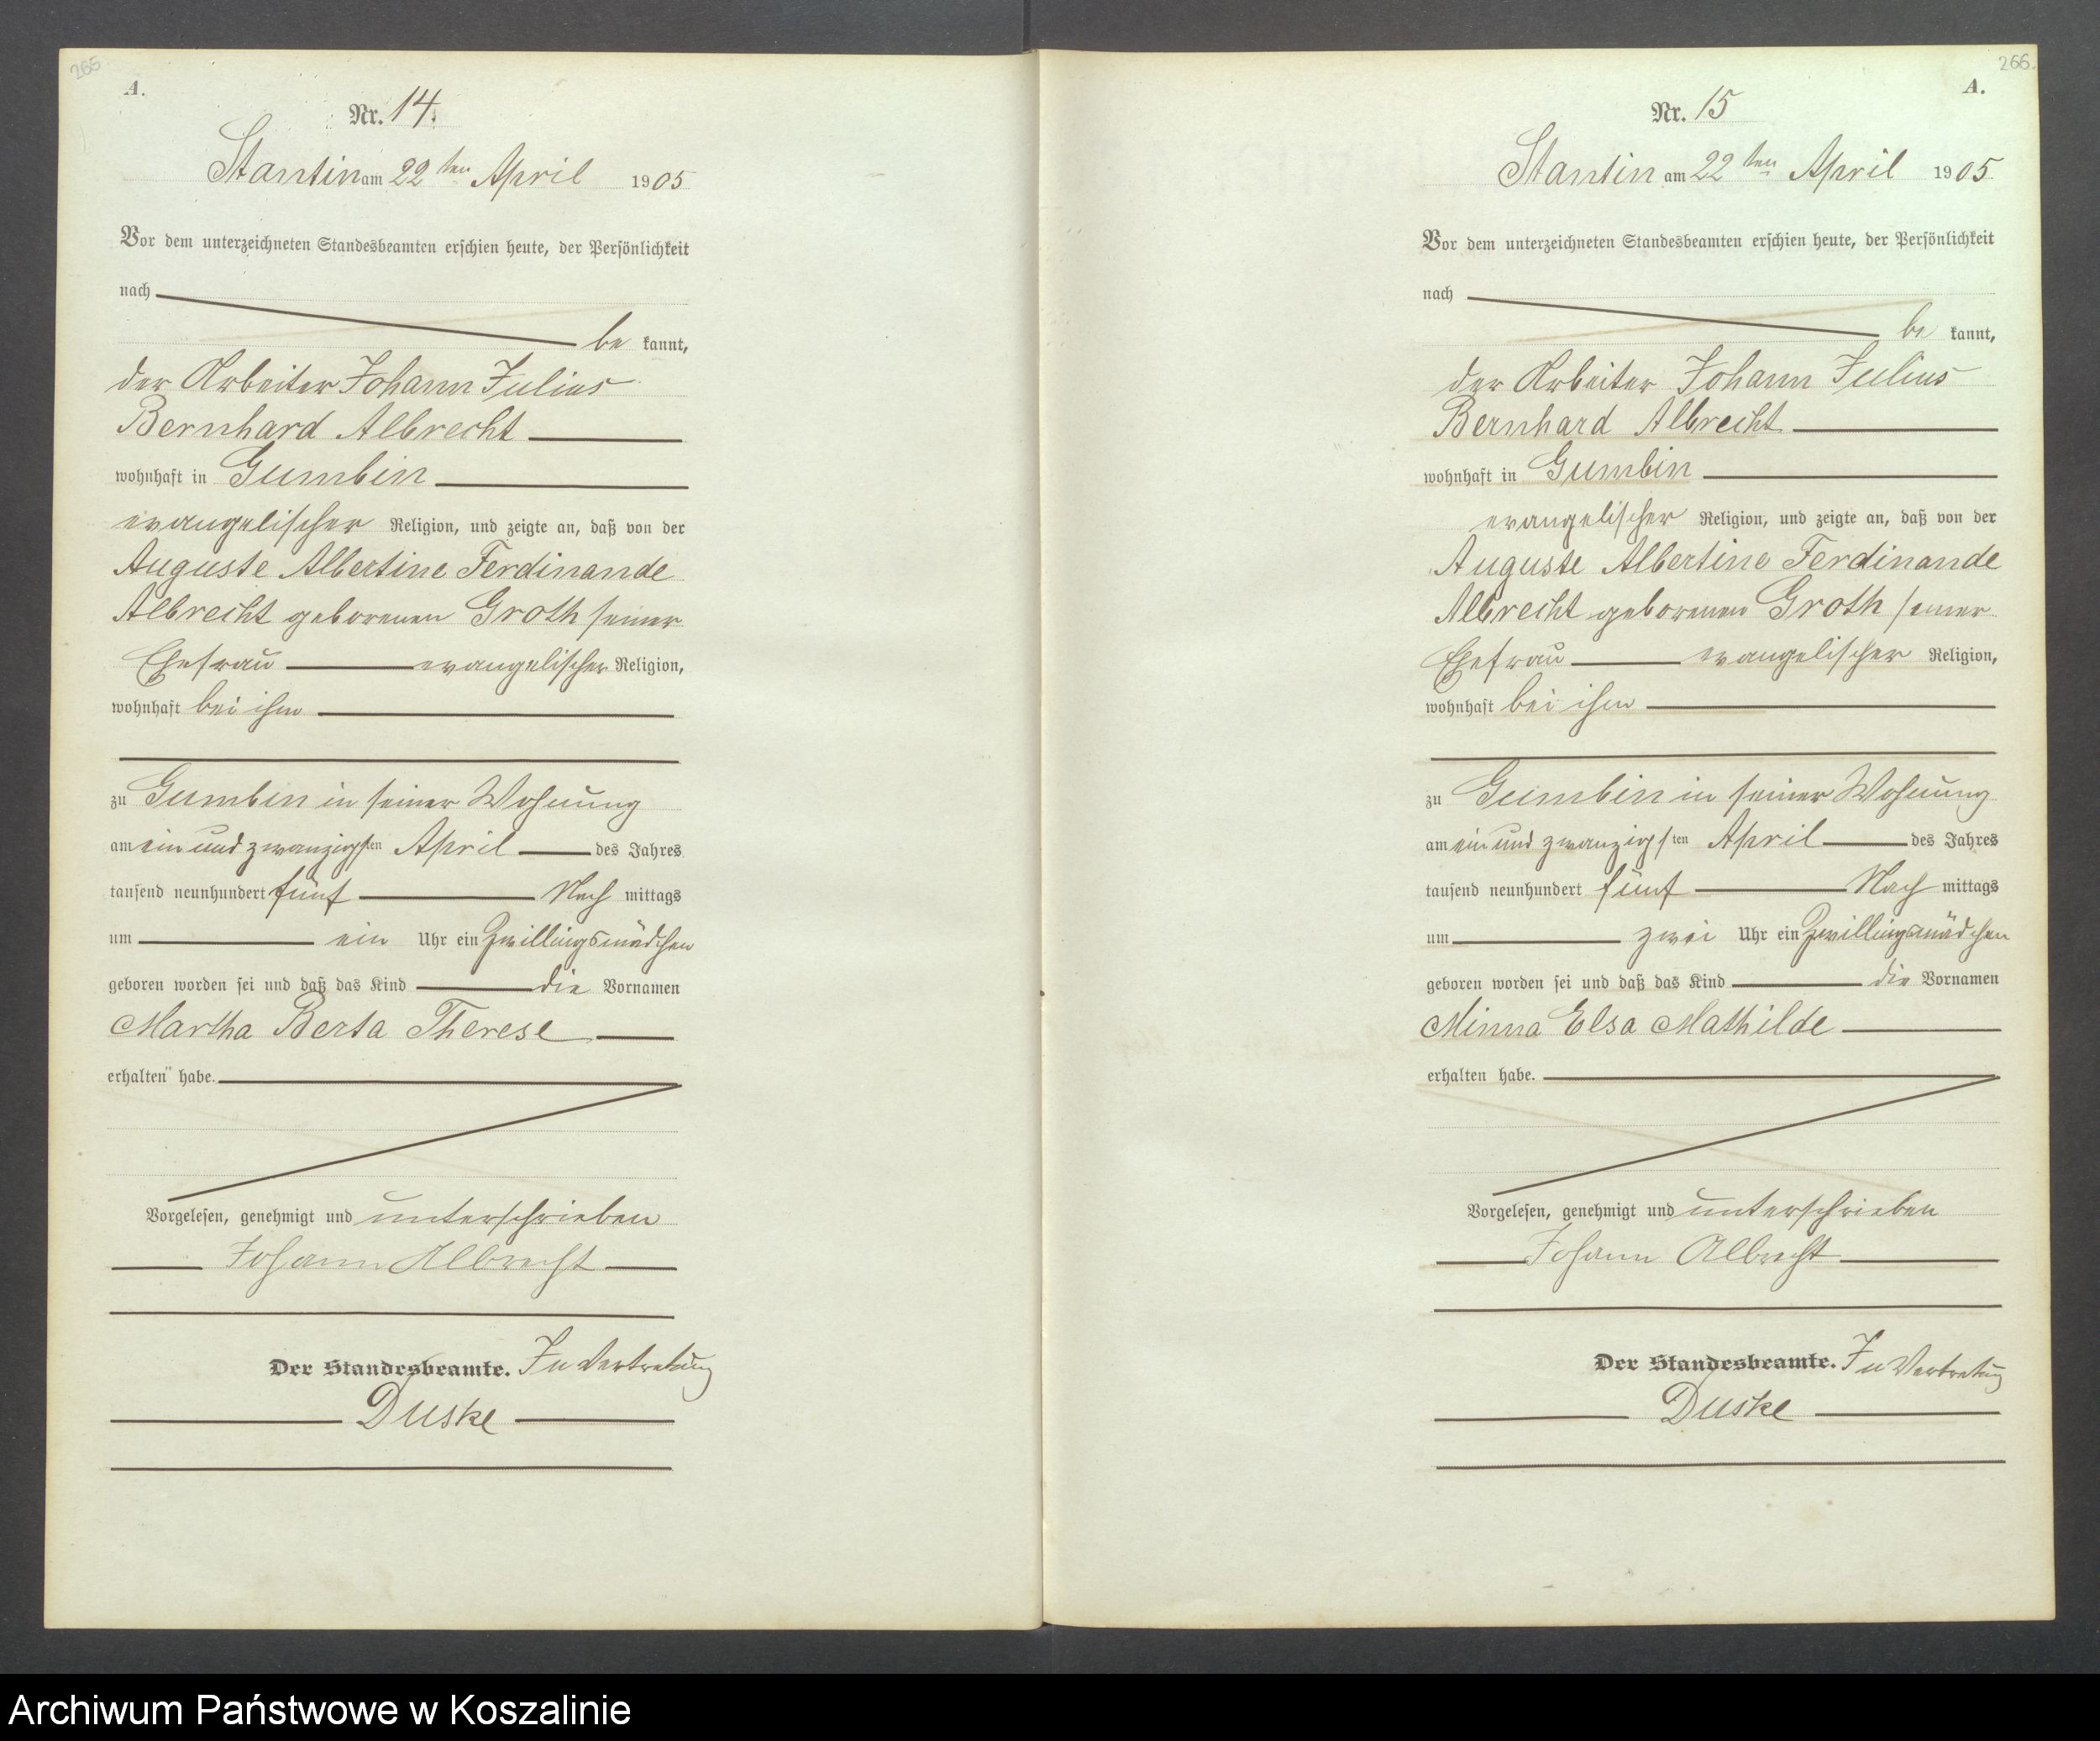 265
A.
Nr. 14.
Stantin am 22ten April 1905
Vor dem unterzeichneten Standesbeamten erschien heute, der Persönlichkeit
nach
be kannt,
der Arbeiter Johann Julius
Bernhard Albrecht
wohnhaft in Gumbin
evangelischer Religion, und zeigte an, daß von der
Auguste Albertine Ferdinande
Albrecht geborenen Groth seiner
Ehefrau evangelischer Religion,
wohnhaft bei ihm
zu Gumbin in seiner Wohnung
am ein und zwanzigsten April des Jahres
tausend neunhundert fünf Nach mittags
um ein Uhr ein Zwillingsmädchen
geboren worden sei und daß das Kind die Vornamen
Martha Berta Therese
erhalten habe.
Vorgelesen, genehmigt und unterschrieben
Johann Albrecht
Der Standesbeamte. In Vertretung
Duske
266.
A.
Nr. 15
Stantin am 22ten April 1905
Vor dem unterzeichneten Standesbeamten erschien heute, der Persönlichkeit
nach
be kannt,
der Arbeiter Johann Julius
Bernhard Albrecht
wohnhaft in Gumbin
evangelischer Religion, und zeigte an, daß von der
Auguste Albertine Ferdinande
Albrecht geborenen Groth seiner
Ehefrau evangelischer Religion,
wohnhaft bei ihm
zu Gumbin in seiner Wohnung
am ein und zwanzigsten April des Jahres
tausend neunhundert fünf Nach mittags
um zwei Uhr ein Zwillingsmädchen
geboren worden sei und daß das Kind die Vornamen
Minna Elsa Mathilde
erhalten habe.
Vorgelesen, genehmigt und unterschrieben
Johann Albrecht
Der Standesbeamte. In Vertretung
Duske
Archiwum Państwowe w Koszalinie